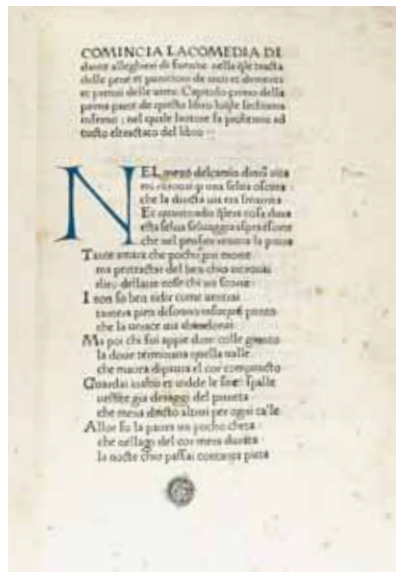 COMINCIA LACOMEDIA DI
dante alleghieri di fiorenze nella q̄le tracta
delle pene et punitioni de uitii et demeriti
et premii delle uirtu: Capitolo primo della
prima parte de questo libro loq̄le sechiama
inferno : nel quale lautore fa prohemio ad
tucto eltractato del libro :·
NEL mezo delcamin dinr̄a uita
mi ritrouai p una selua oscura
che la diricta uia era smarrita
Et quanto adir q̄lera cosa dura
esta selua seluaggia aspra eforte
che nel pensier renoua la paura
Tante amara che pocho piu morte
ma pertractar del ben chio uitrouai
diro dellaltre cose chi uo scorte
I non so ben ridir come uentrai
tantera pien di sonno insu quel punto
che la uerace uia abandonai
Ma poi chi fui appie dum colle giunto
la doue terminaua quella ualle
che mauea dipaura el cor compuncto
Guardai inalto et uidde le sue spalle
uestite gia deraggi del pianeta
che mena dricto altrui per ogni calle
Allor fu la paura un pocho cheta
che nellago del cor mera durata
la nocte chio passai contanta pieta